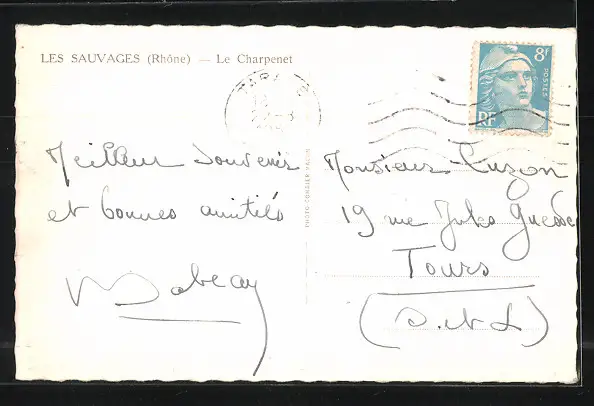 LES SAUVAGES (Rhône) — Le Charpenet
TARA
8f
POSTES
RF
Meilleur souvenir
et bonnes amitiés
PHOTO-CORDIER
Monsieur Luzon
19 rue Jules Guesde
Tours
(I. et L)